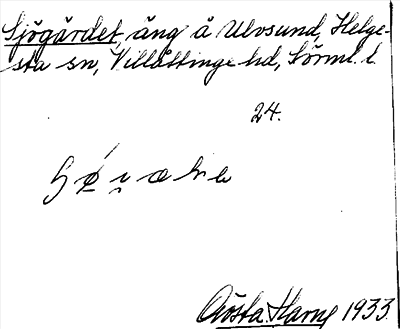 Sjögärdet, äng å Ulvsund, Helge-
sta sn, Villåttinge hd, Sörml. l.
24.
Gösta Harne 1933